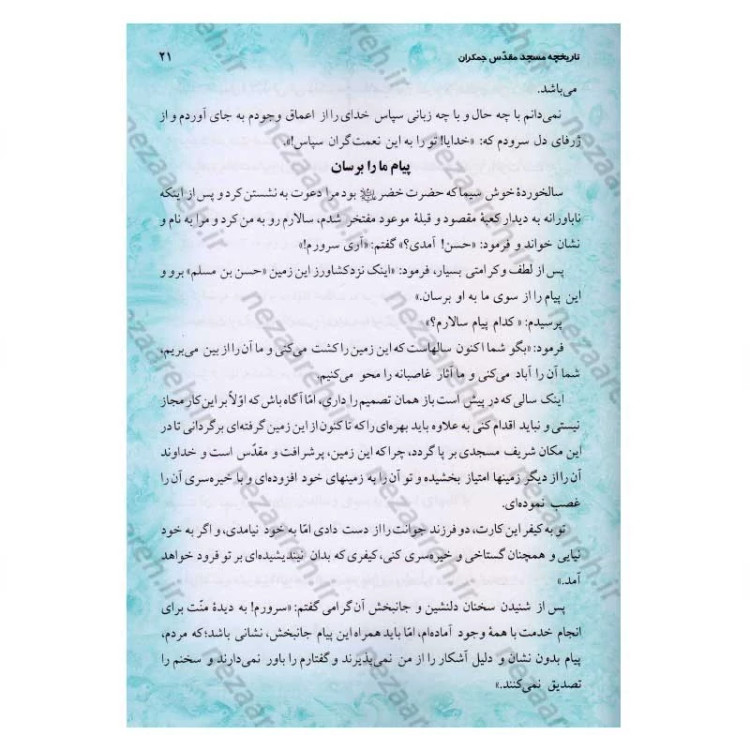 تاریخچه مسجد مقدّس جمکران ۲۱
می‌باشد.
نمی‌دانم با چه حال و با چه زبانی سپاس خدای را از اعماق وجودم به جای آوردم و از
ژرفای دل سرودم که: «خدایا! تو را به این نعمت‌گران سپاس!».
پیام ما را برسان
سالخوردهٔ خوش سیما که حضرت خضر بود مرا دعوت به نشستن کرد و پس از اینکه
ناباورانه به دیدار کعبهٔ مقصود و قبلهٔ موعود مفتخر شدم، سالارم رو به من کرد و مرا به نام و
نشان خواند و فرمود: «حسن! آمدی؟» گفتم: «آری سرورم!»
پس از لطف و کرامتی بسیار، فرمود: «اینک نزد کشاورز این زمین «حسن بن مسلم» برو و
این پیام را از سوی ما به او برسان.»
پرسیدم: «کدام پیام سالارم؟»
فرمود: «بگو شما اکنون سالهاست که این زمین را کشت می‌کنی و ما آن را از بین می‌بریم،
شما آن را آباد می‌کنی و ما آثار غاصبانه را محو می‌کنیم.
اینک سالی که در پیش است باز همان تصمیم را داری، امّا آگاه باش که اوّلاً بر این کار مجاز
نیستی و نباید اقدام کنی به علاوه باید بهره‌ای را که تاکنون از این زمین گرفته‌ای برگردانی تا در
این مکان شریف مسجدی بر پا گردد، چرا که این زمین، پرشرافت و مقدّس است و خداوند
آن را از دیگر زمینها امتیاز بخشیده و تو آن را به زمینهای خود افزوده‌ای و با خیره‌سری آن را
غصب نموده‌ای.
تو به کیفر این کارت، دو فرزند جوانت را از دست دادی امّا به خود نیامدی، و اگر به خود
نیایی و همچنان گستاخی و خیره‌سری کنی، کیفری که بدان نیندیشیده‌ای بر تو فرود خواهد
آمد.»
پس از شنیدن سخنان دلنشین و جانبخش آن گرامی گفتم: «سرورم! به دیدهٔ منّت برای
انجام خدمت با همهٔ وجود آماده‌ام، امّا باید همراه این پیام جانبخش، نشانی باشد؛ که مردم،
پیام بدون نشان و دلیل آشکار را از من نمی‌پذیرند و گفتارم را باور نمی‌دارند و سخنم را
تصدیق نمی‌کنند.»
nezaareh.ir